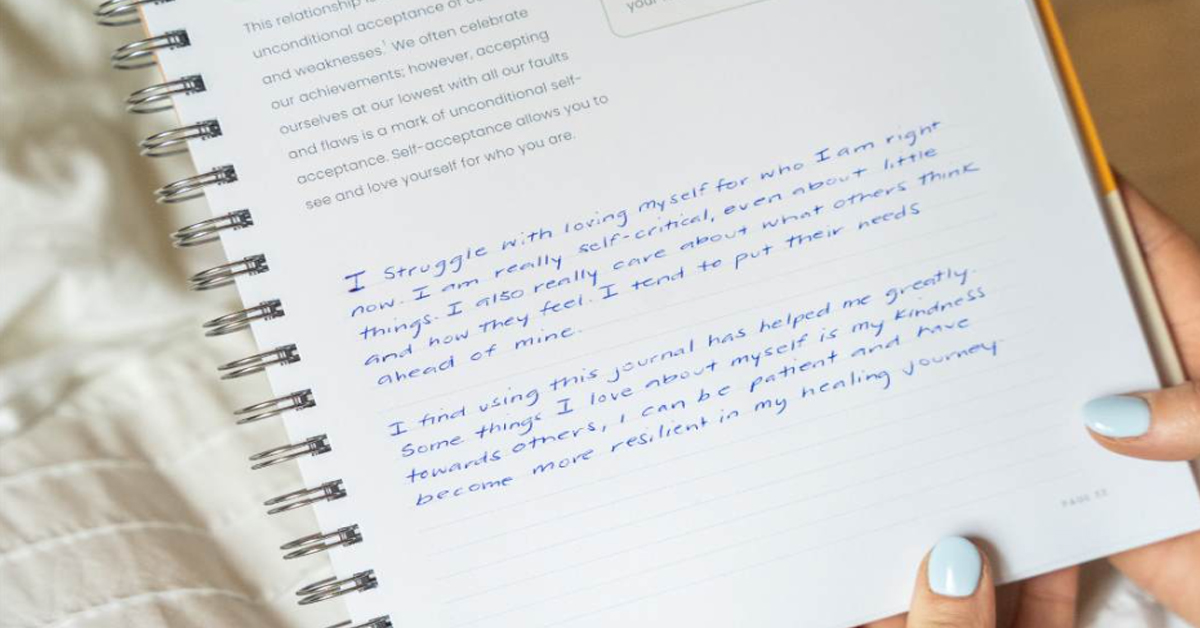 This relationship is
unconditional acceptance of
and weaknesses.¹ We often celebrate
our achievements; however, accepting
ourselves at our lowest with all our faults
and flaws is a mark of unconditional self-
acceptance. Self-acceptance allows you to
see and love yourself for who you are.
your
I struggle with loving myself for who I am right
now. I am really self-critical, even about little
things. I also really care about what others think
and how they feel. I tend to put their needs
ahead of mine.
I find using this journal has helped me greatly.
Some things I love about myself is my kindness
towards others, I can be patient and have
become more resilient in my healing journey.
PAGE